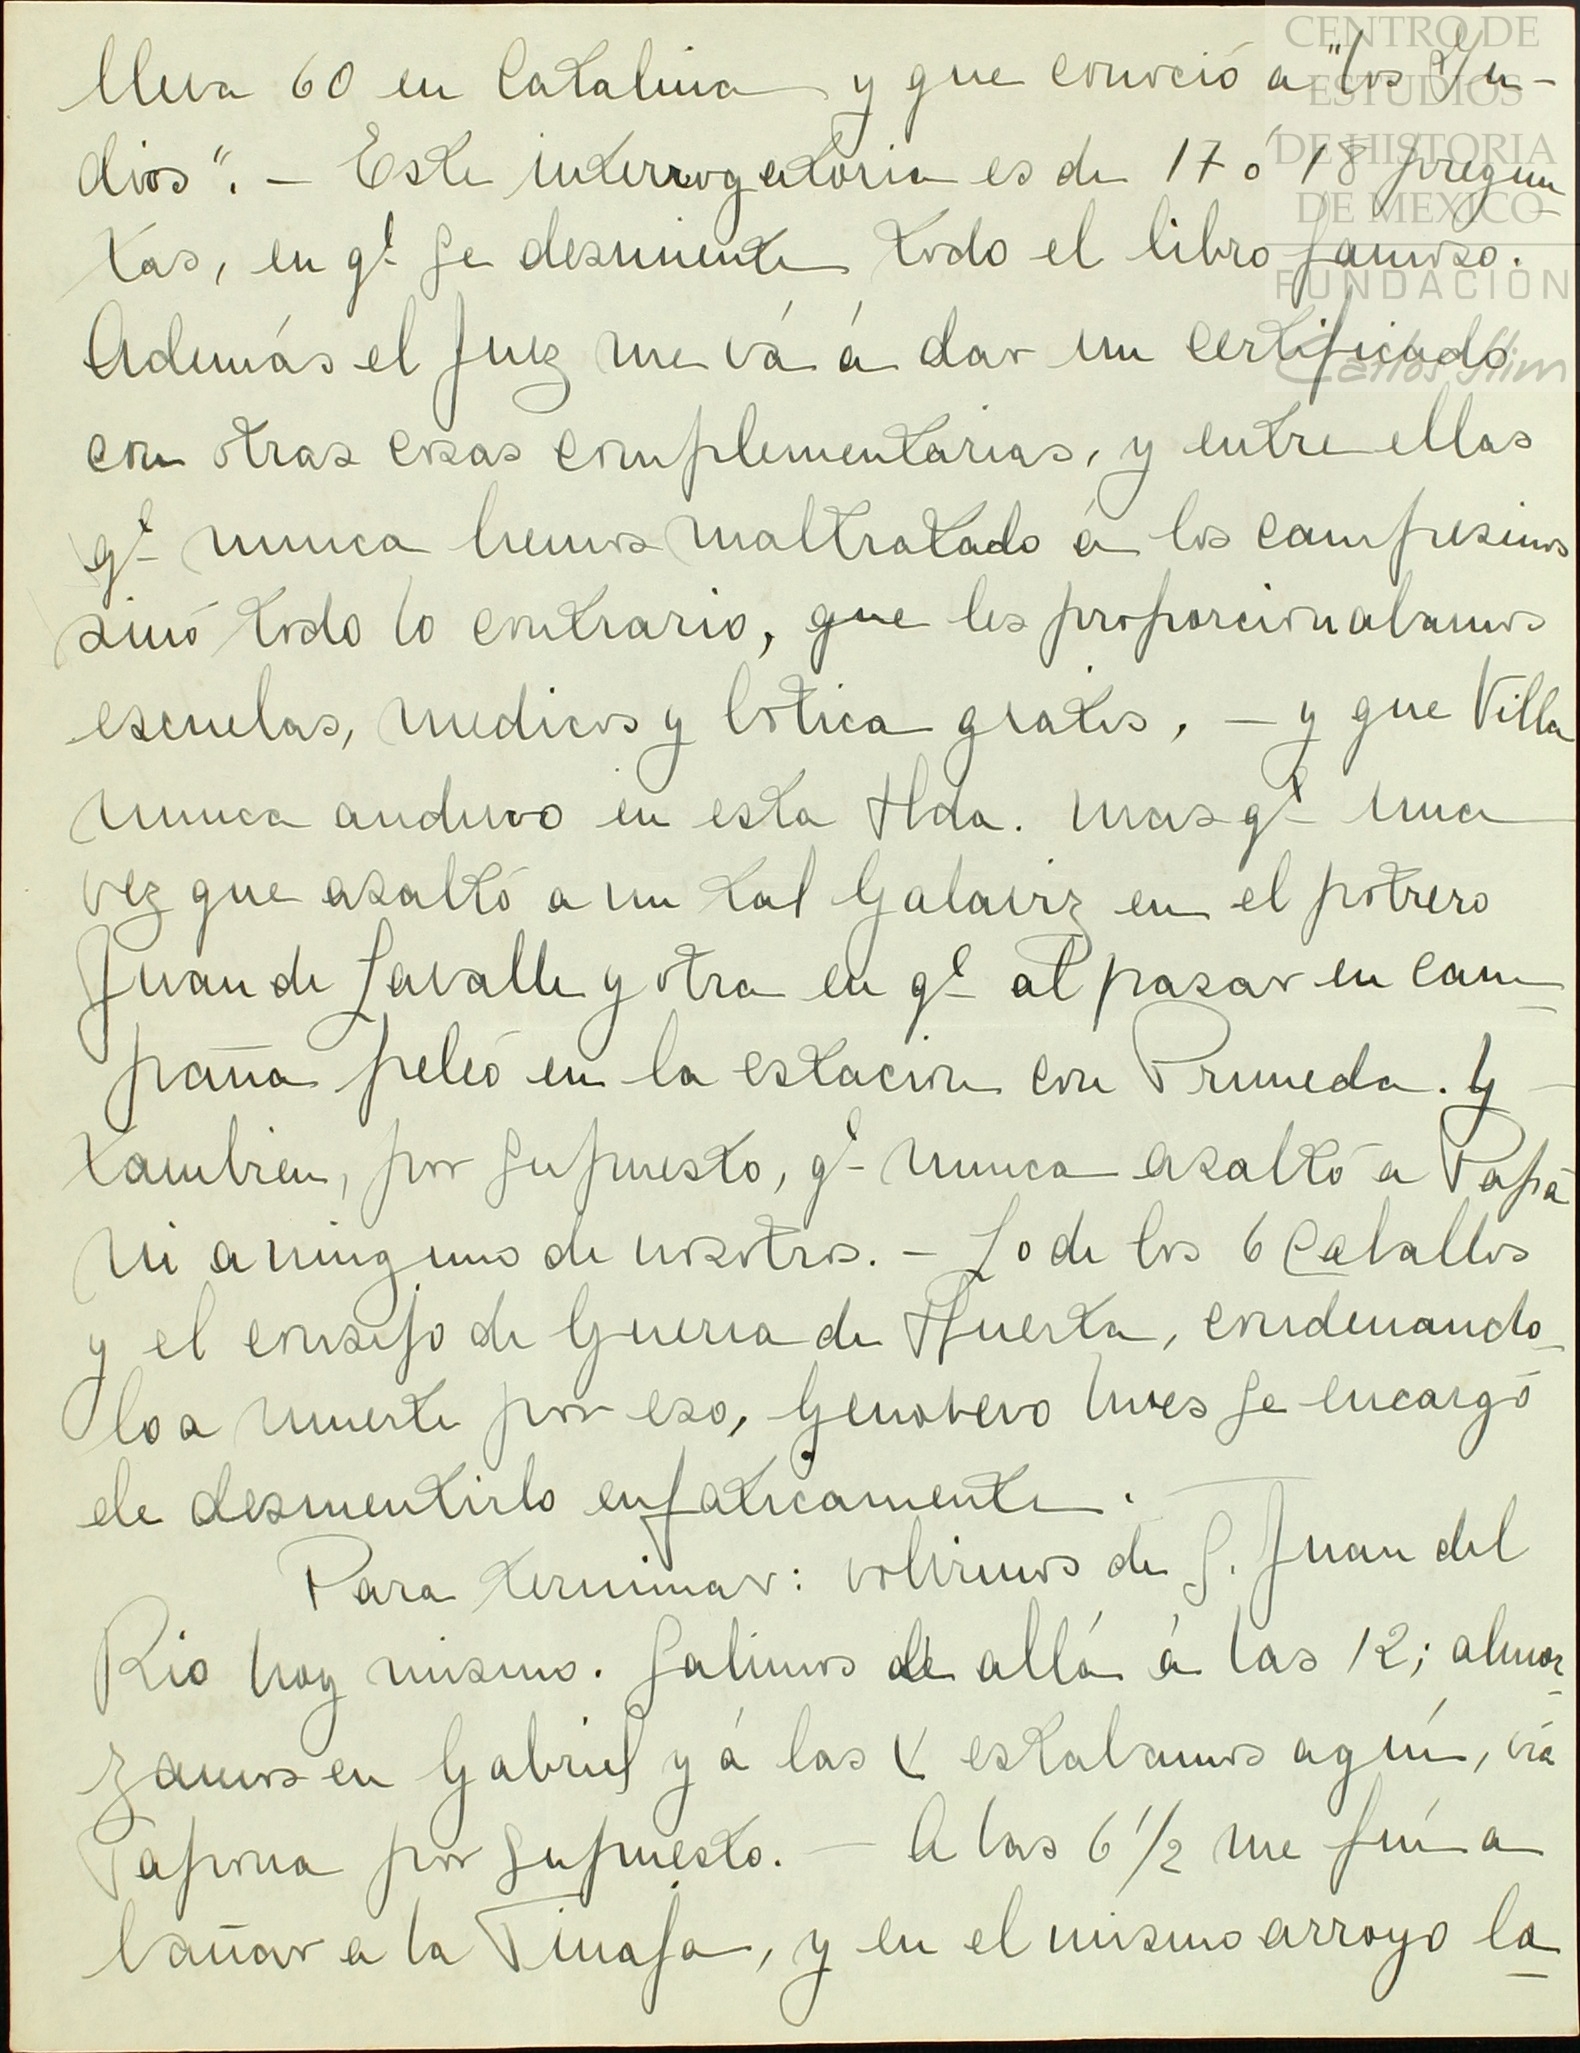 lleva 60 en Catalina y que conoció a "los Yn-
dios". — Este interrogatorio es de 17 ó 18 pregun
tas, en qe. se desmiente todo el libro famoso.
Además el Juez me vá á dar un certificado
con otras cosas complementarias, y entre ellas
qe. nunca hemos maltratado á los campesinos
sinó todo lo contrario, que les proporcionabamos
escuelas, medicos y botica gratis, — y que Villa
nunca anduvo en esta Hda. mas qe. una
vez que asaltó a un tal Galaviz en el potrero
Juan de Lavalle y otra en qe. al pasar en cam-
paña peleó en la estacion con Pruneda. Y
tambien, por supuesto, qe. nunca asaltó a Papá
ni a ninguno de nosotros. — Lo de los 6 Caballos
y el consejo de Guerra de Huerta, condenando-
lo a muerte por eso, Genovevo se encargó
de desmentirlo enfaticamente.
Para terminar: volvimos de S. Juan del
Rio hoy mismo. Salimos de allá á las 12; almor-
zamos en Gabriel y á las estabamos aquí, vía
Tapona por supuesto. — A las 6 1/2 me fuí a
bañar a la Tinaja, y en el mismo arroyo la-
CENTRO DE
ESTUDIOS
DE HISTORIA
DE MEXICO
FUNDACIÓN
Carlos Slim